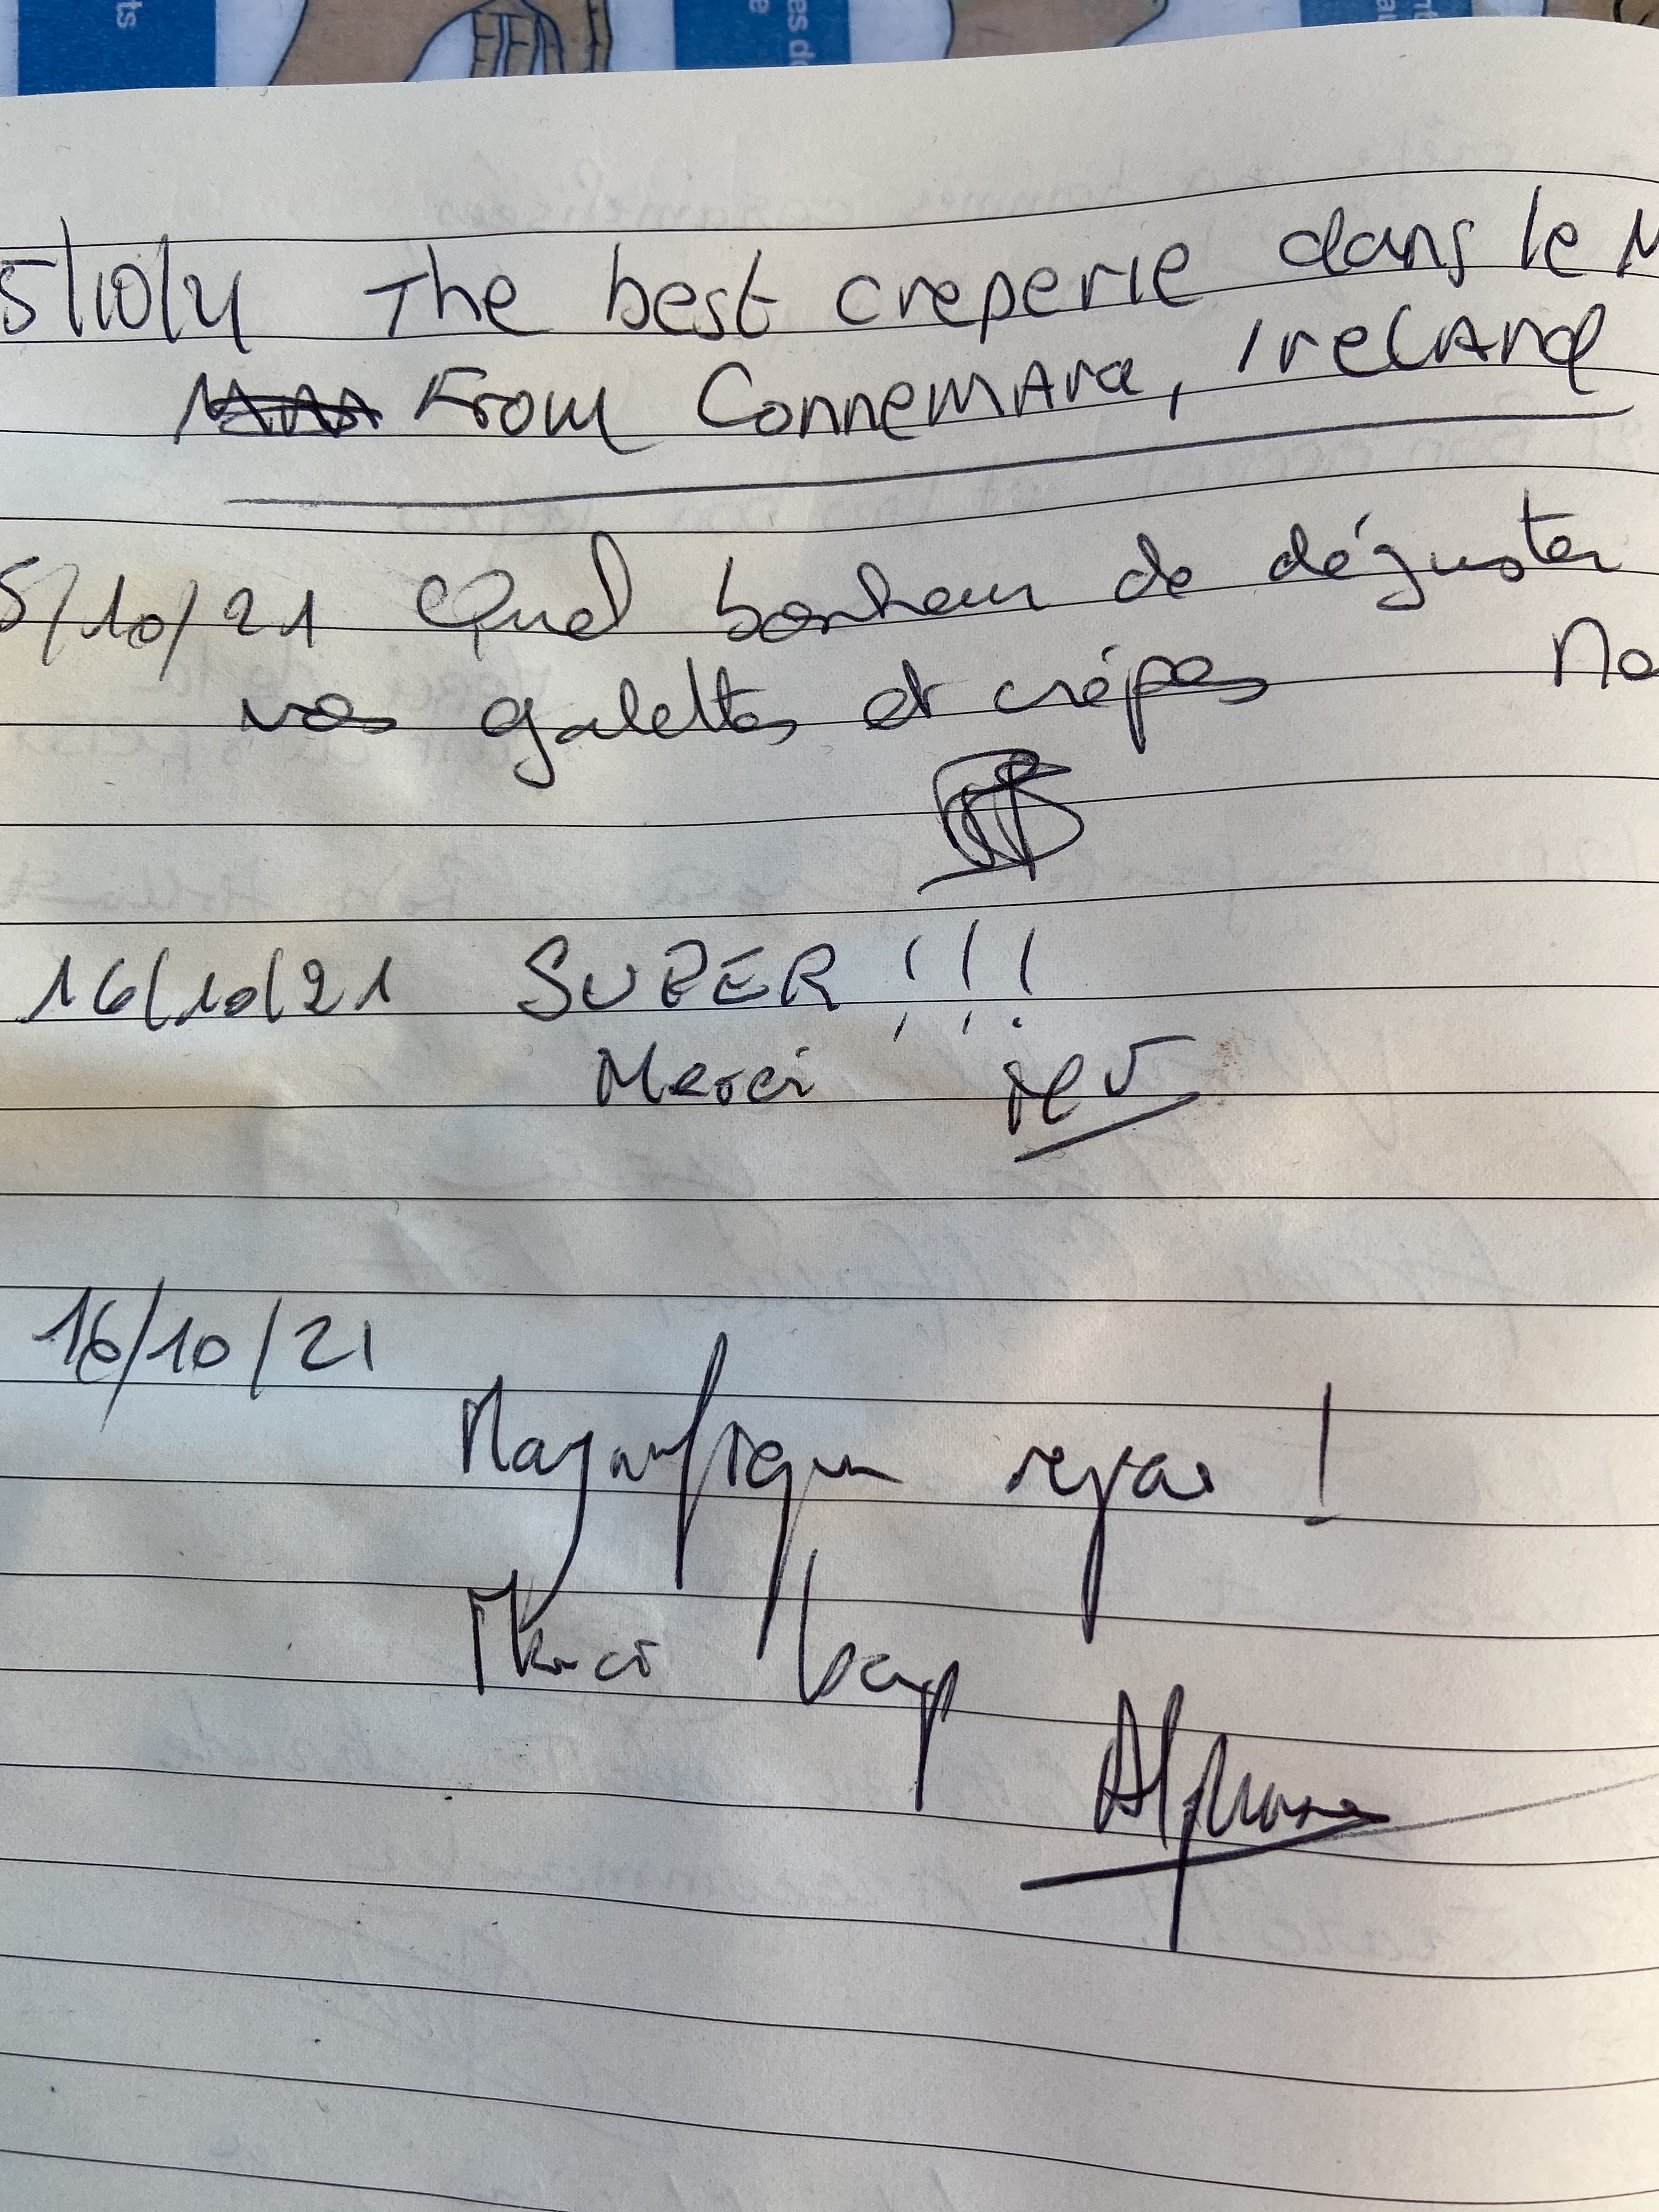 ts
es de
e
5/10/21 The best creperie dans le M
From Connemara, Ireland
5/10/21 Quel bonheur de déguster
vos galettes et crêpes No
16/10/21 SUPER !!!
Merci
16/10/21
Magnifique repas !
Merci bcp
Alphonse